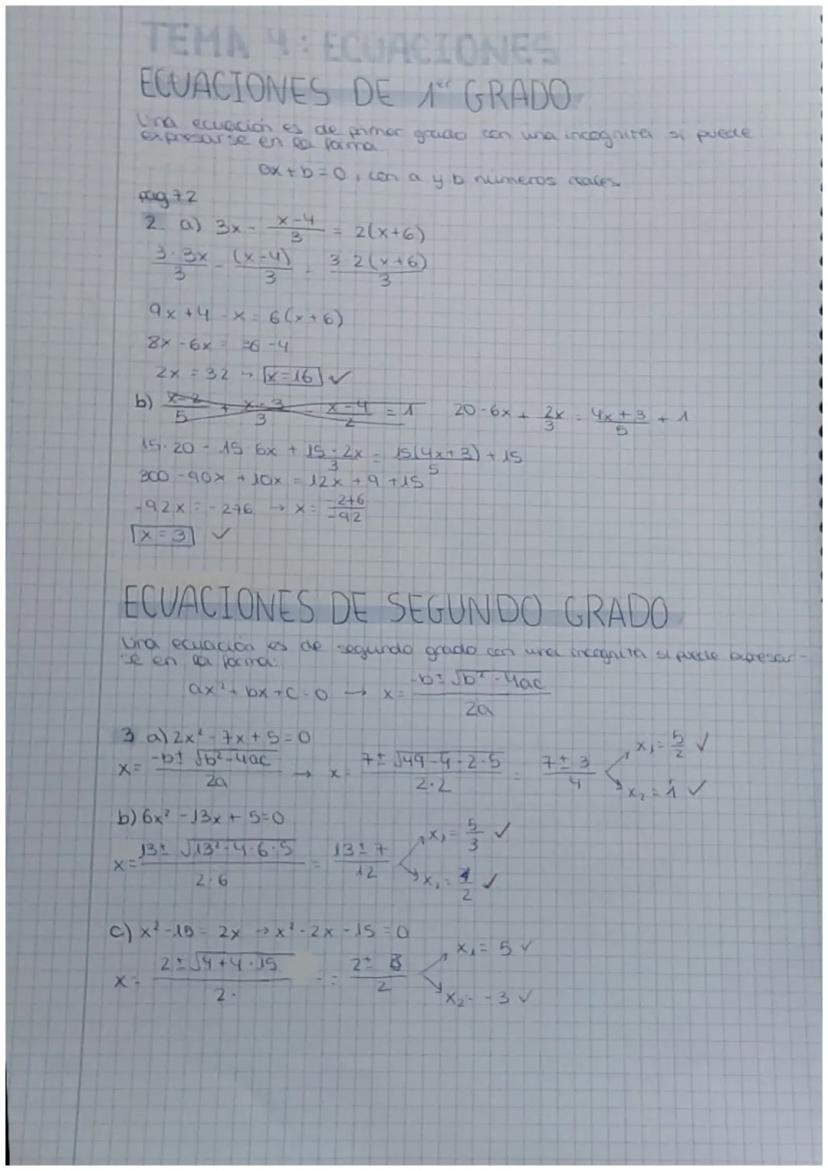 TEMA 4: ECUACIONES
ECUACIONES DE 1er GRADO
Una ecuación es de primer grado con una incognita si puede
expresarse en la forma
ax+b=0, con a y b números reales
pag 72
2. a) 3x - (x-4)/3 = 2(x+6)
3·3x/3 - (x-4)/3 = 3·2(x+6)/3
9x+4-x = 6(x+6)
8x-6x = 36-4
2x = 32 → x=16 ✓
b) x-2/5 + x-3/3 - x-4/2 = 1 20-6x + 2x/3 = 4x+3/5 + 1
15·20 - 15·6x + 15·2x/3 = 15(4x+3)/5 + 15
300-90x+10x = 12x+9+15
-92x = -276 → x = -276/-92
x=3 ✓
ECUACIONES DE SEGUNDO GRADO
Una ecuación es de segundo grado con una incognita si puede expresar-
se en la forma:
ax²+bx+c=0 → x = -b±√b²-4ac/2a
3 a) 2x²-7x+5=0
x = -b±√b²-4ac/2a → x = 7±√49-4·2·5/2·2 = 7±3/4 x₁=5/2 ✓ x₂=1 ✓
b) 6x²-13x+5=0
x = 13±√13²-4·6·5/2·6 = 13±7/12 x₁=5/3 ✓ x₂=1/2 ✓
c) x²-15=2x → x²-2x-15=0
x = 2±√4+4·15/2· = 2±8/2 x₁=5 ✓ x₂=-3 ✓